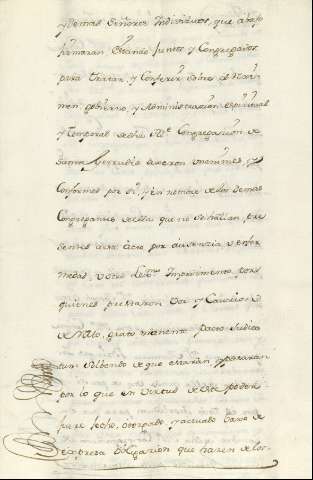 y demas Señores Individuos, que abajo
firmaran Estando Juntos y Congregados
para tratar, y Conferir sobre el
men gobierno y Administrazion espiritual
y temporal de dha Rl Congregazion de
Santa Gertrudis dixeron unanimes, y
Conformes por si, y en nombre de los demas
Congregantes de ella que no se hallan, pre
sentes a este acto por ausenzia, u enfer
medad, u otro legmo Impedimento, por
quienes prestaron Voz y Caucion
de rato, grato manente pacto Judica
tum Solbendo de que estaran y pasaran
por lo que en Virtud de este poder
fuere fecho, otorgado y actuado baxo de
expresa obligazion que hazen de los